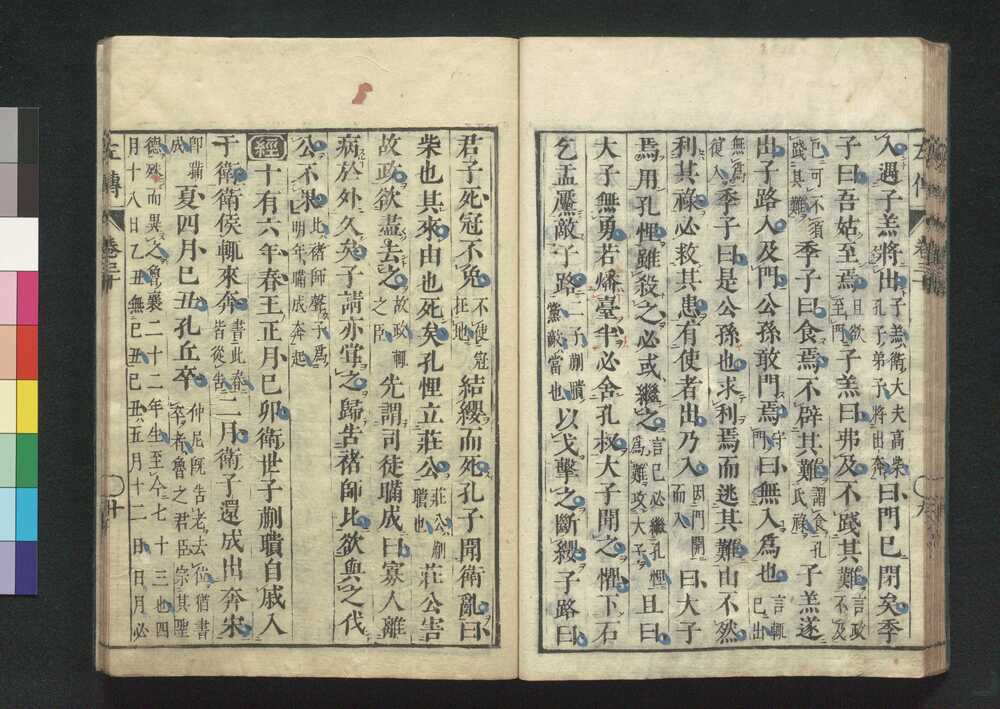 入遇子羔將出子羔衛大夫高柴孔子弟子將出奔曰門已閉矣季
子曰吾姑至焉且欲至門子羔曰弗及不踐其難言政不及
已可不須踐其難季子曰食焉不辟其難謂食孔氏祿子羔遂
出子路入及門公孫敢門焉守門曰無入爲也言輒已出
無爲復入季子曰是公孫也求利焉而逃其難由不然
利其祿必救其患有使者出乃入因門開而入曰大子
焉用孔悝雖殺之必或繼之言己必繼孔悝爲難攻大子且曰
大子無勇若燔臺半必舍孔叔大子聞之懼下石
乞盂黶敵子路二子蒯聵黨敵當也以戈擊之斷纓子路曰
君子死冠不免不使冠在地結纓而死孔子聞衛亂曰
柴也其來由也死矣孔悝立莊公莊公蒯聵也莊公害
故政欲盡去之故政輒之臣先謂司徒瞞成曰寡人離
病於外久矣子請亦嘗之歸告褚師比欲與之代
公不果比褚師聲子爲明年瞞成奔起
經十有六年春王正月己卯衛世子蒯聵自戚入
于衛衛侯輒來奔書此春皆從告二月衛子還成出奔宋
卽瞞成夏四月己丑孔丘卒仲尼既告老去位猶書卒者魯之君臣宗其聖
德殊而異之魯襄二十二年生至今七十三也四
月十八日乙丑無己丑己丑五月十二日日月必
左傳
卷三十
十
左傳
卷三十
九